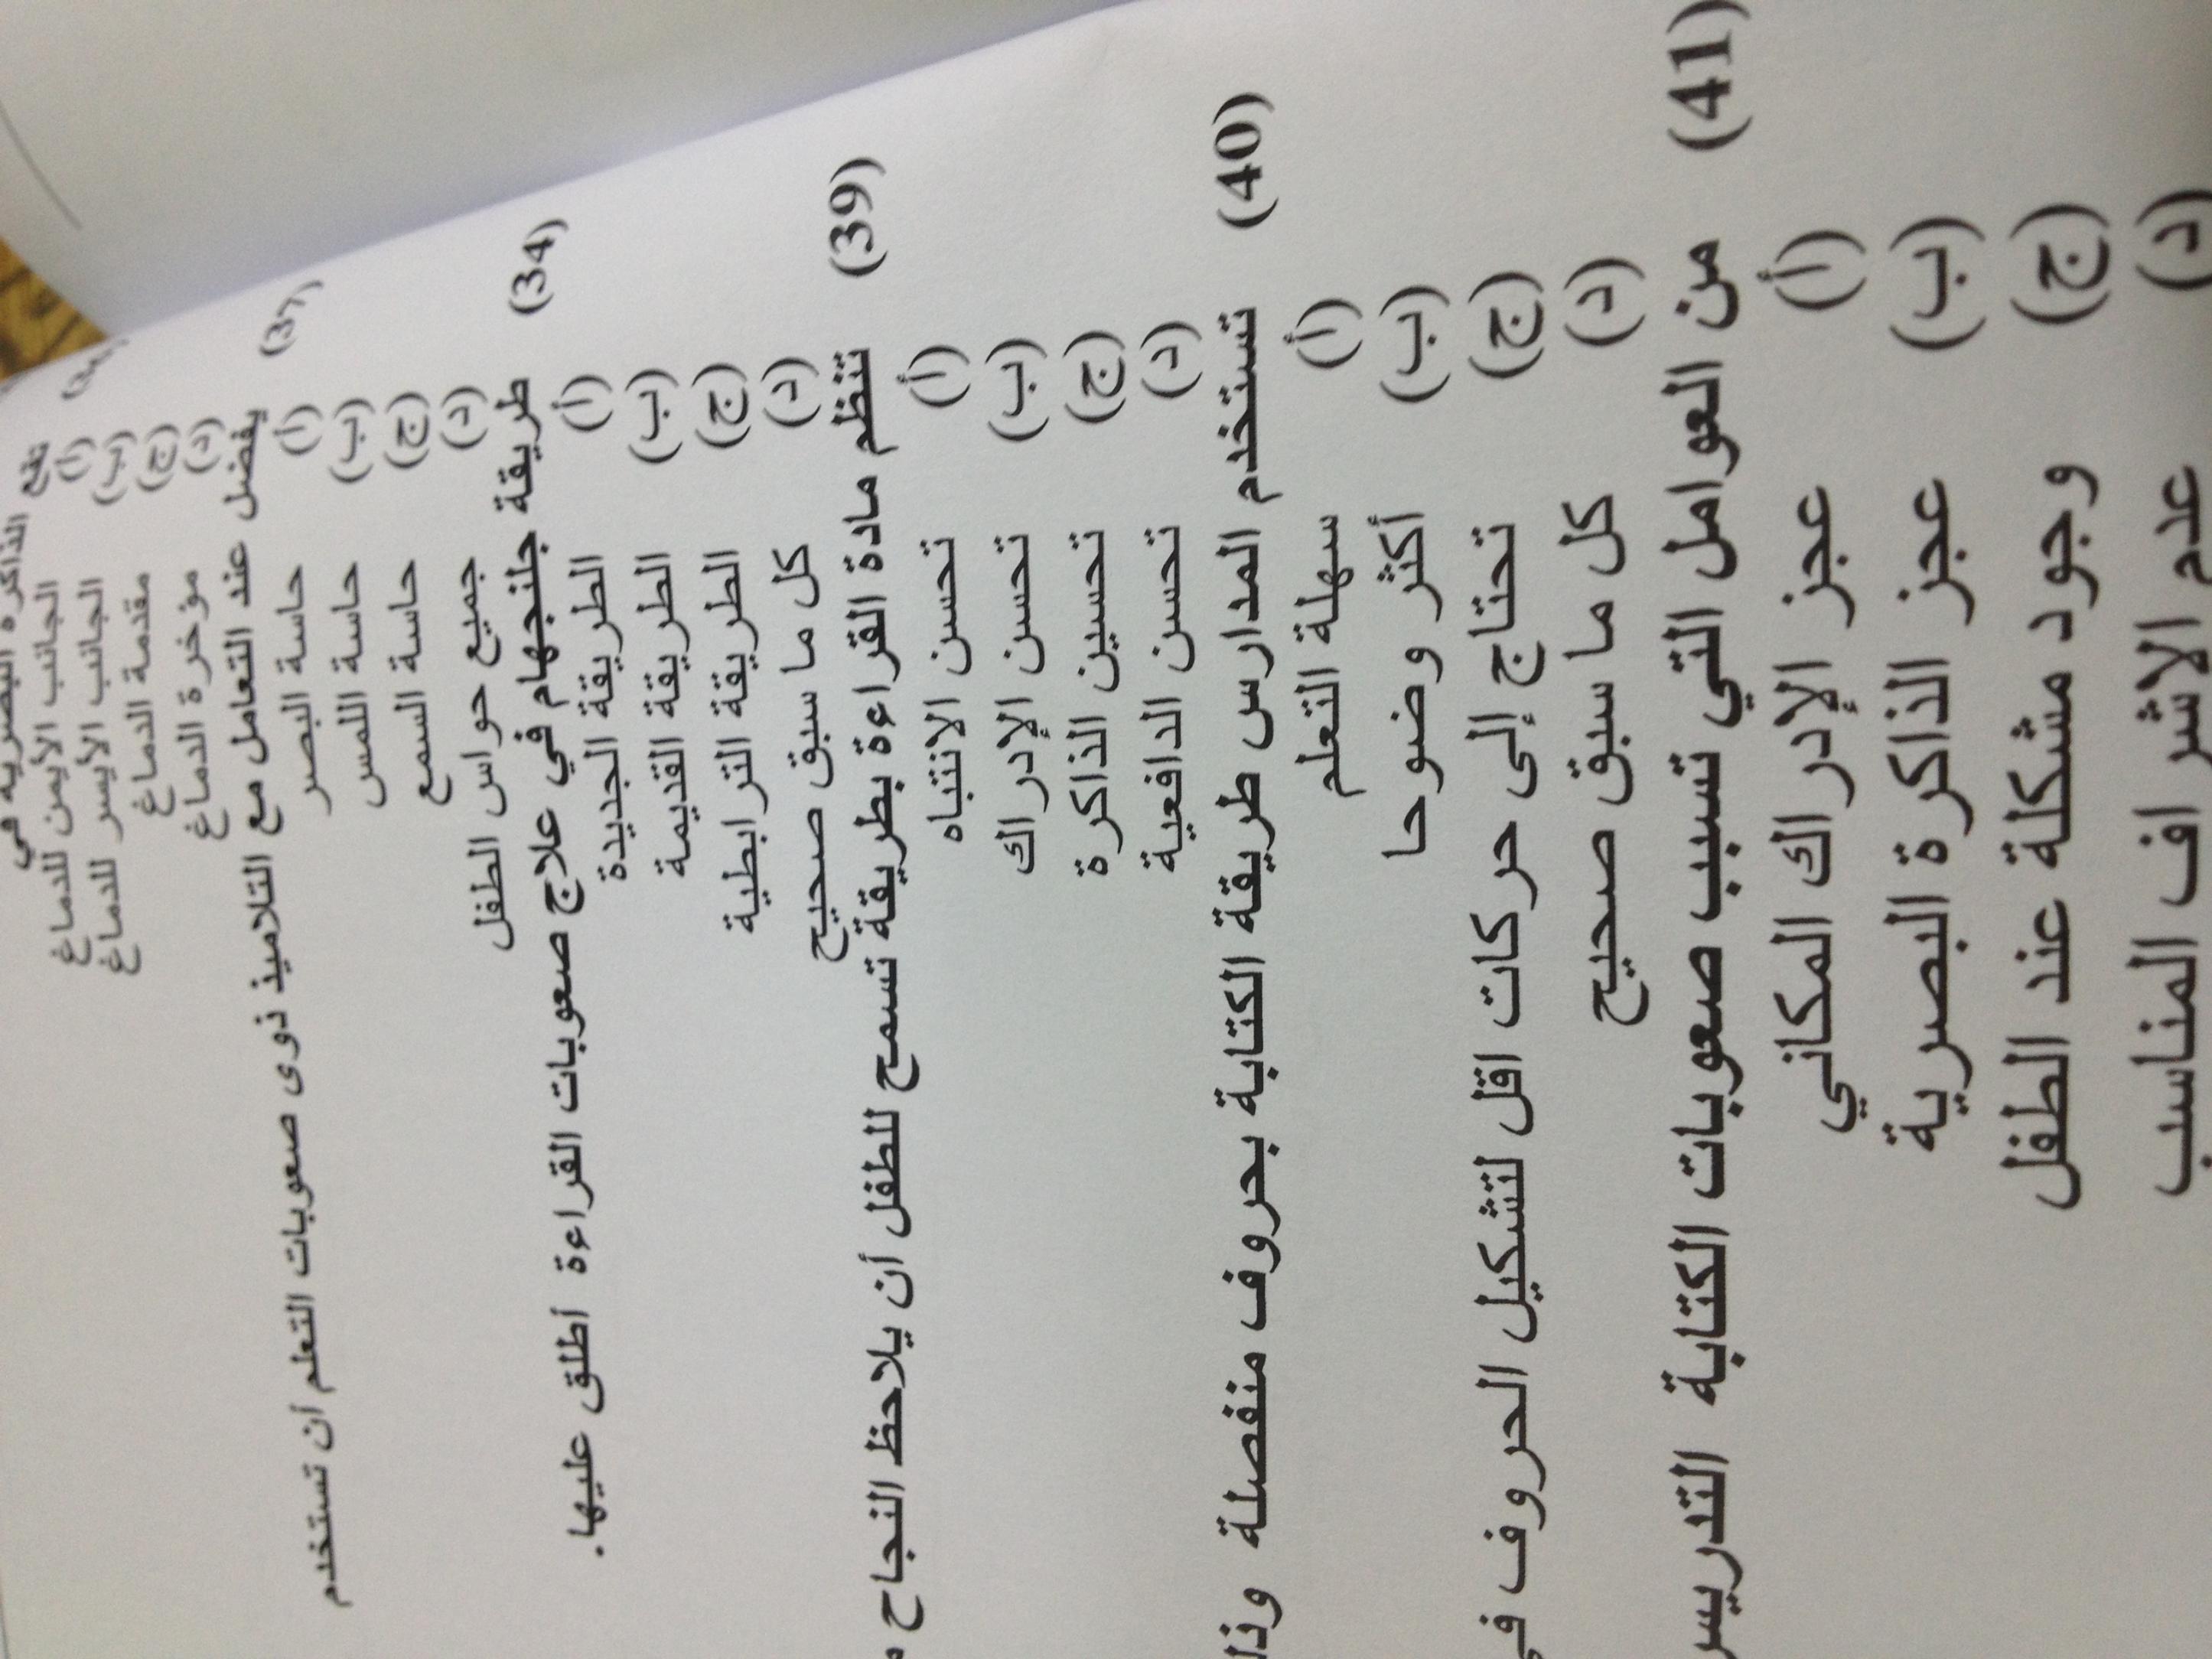 الذاكرة البصرية في
تقع
(أ) الجانب الأيمن للدماغ
(ب) الجانب الأيسر للدماغ
(ج) مقدمة الدماغ
(د) مؤخرة الدماغ
(37) يفضل عند التعامل مع التلاميذ ذوى صعوبات التعلم أن تستخدم
(أ) حاسة البصر
(ب) حاسة اللمس
(ج) حاسة السمع
(د) جميع حواس الطفل
(34) طريقة جلنجهام في علاج صعوبات القراءة أطلق عليها.
(أ) الطريقة الجديدة
(ب) الطريقة القديمة
(ج) الطريقة الترابطية
(د) كل ما سبق صحيح
(39) تنظم مادة القراءة بطريقة تسمح للطفل أن يلاحظ النجاح
(أ) تحسن الانتباه
(ب) تحسن الإدراك
(ج) تحسين الذاكرة
(د) تحسن الدافعية
(40) تستخدم المدارس طريقة الكتابة بحروف منفصلة وذا
(أ) سهلة التعلم
(ب) أكثر وضوحا
(ج) تحتاج إلى حركات اقل لتشكيل الحروف في
(د) كل ما سبق صحيح
(41) من العوامل التي تسبب صعوبات الكتابة التدريس
(أ) عجز الإدراك المكاني
(ب) عجز الذاكرة البصرية
(ج) وجود مشكلة عند الطفل
(د) عدم الاشراف المناسب